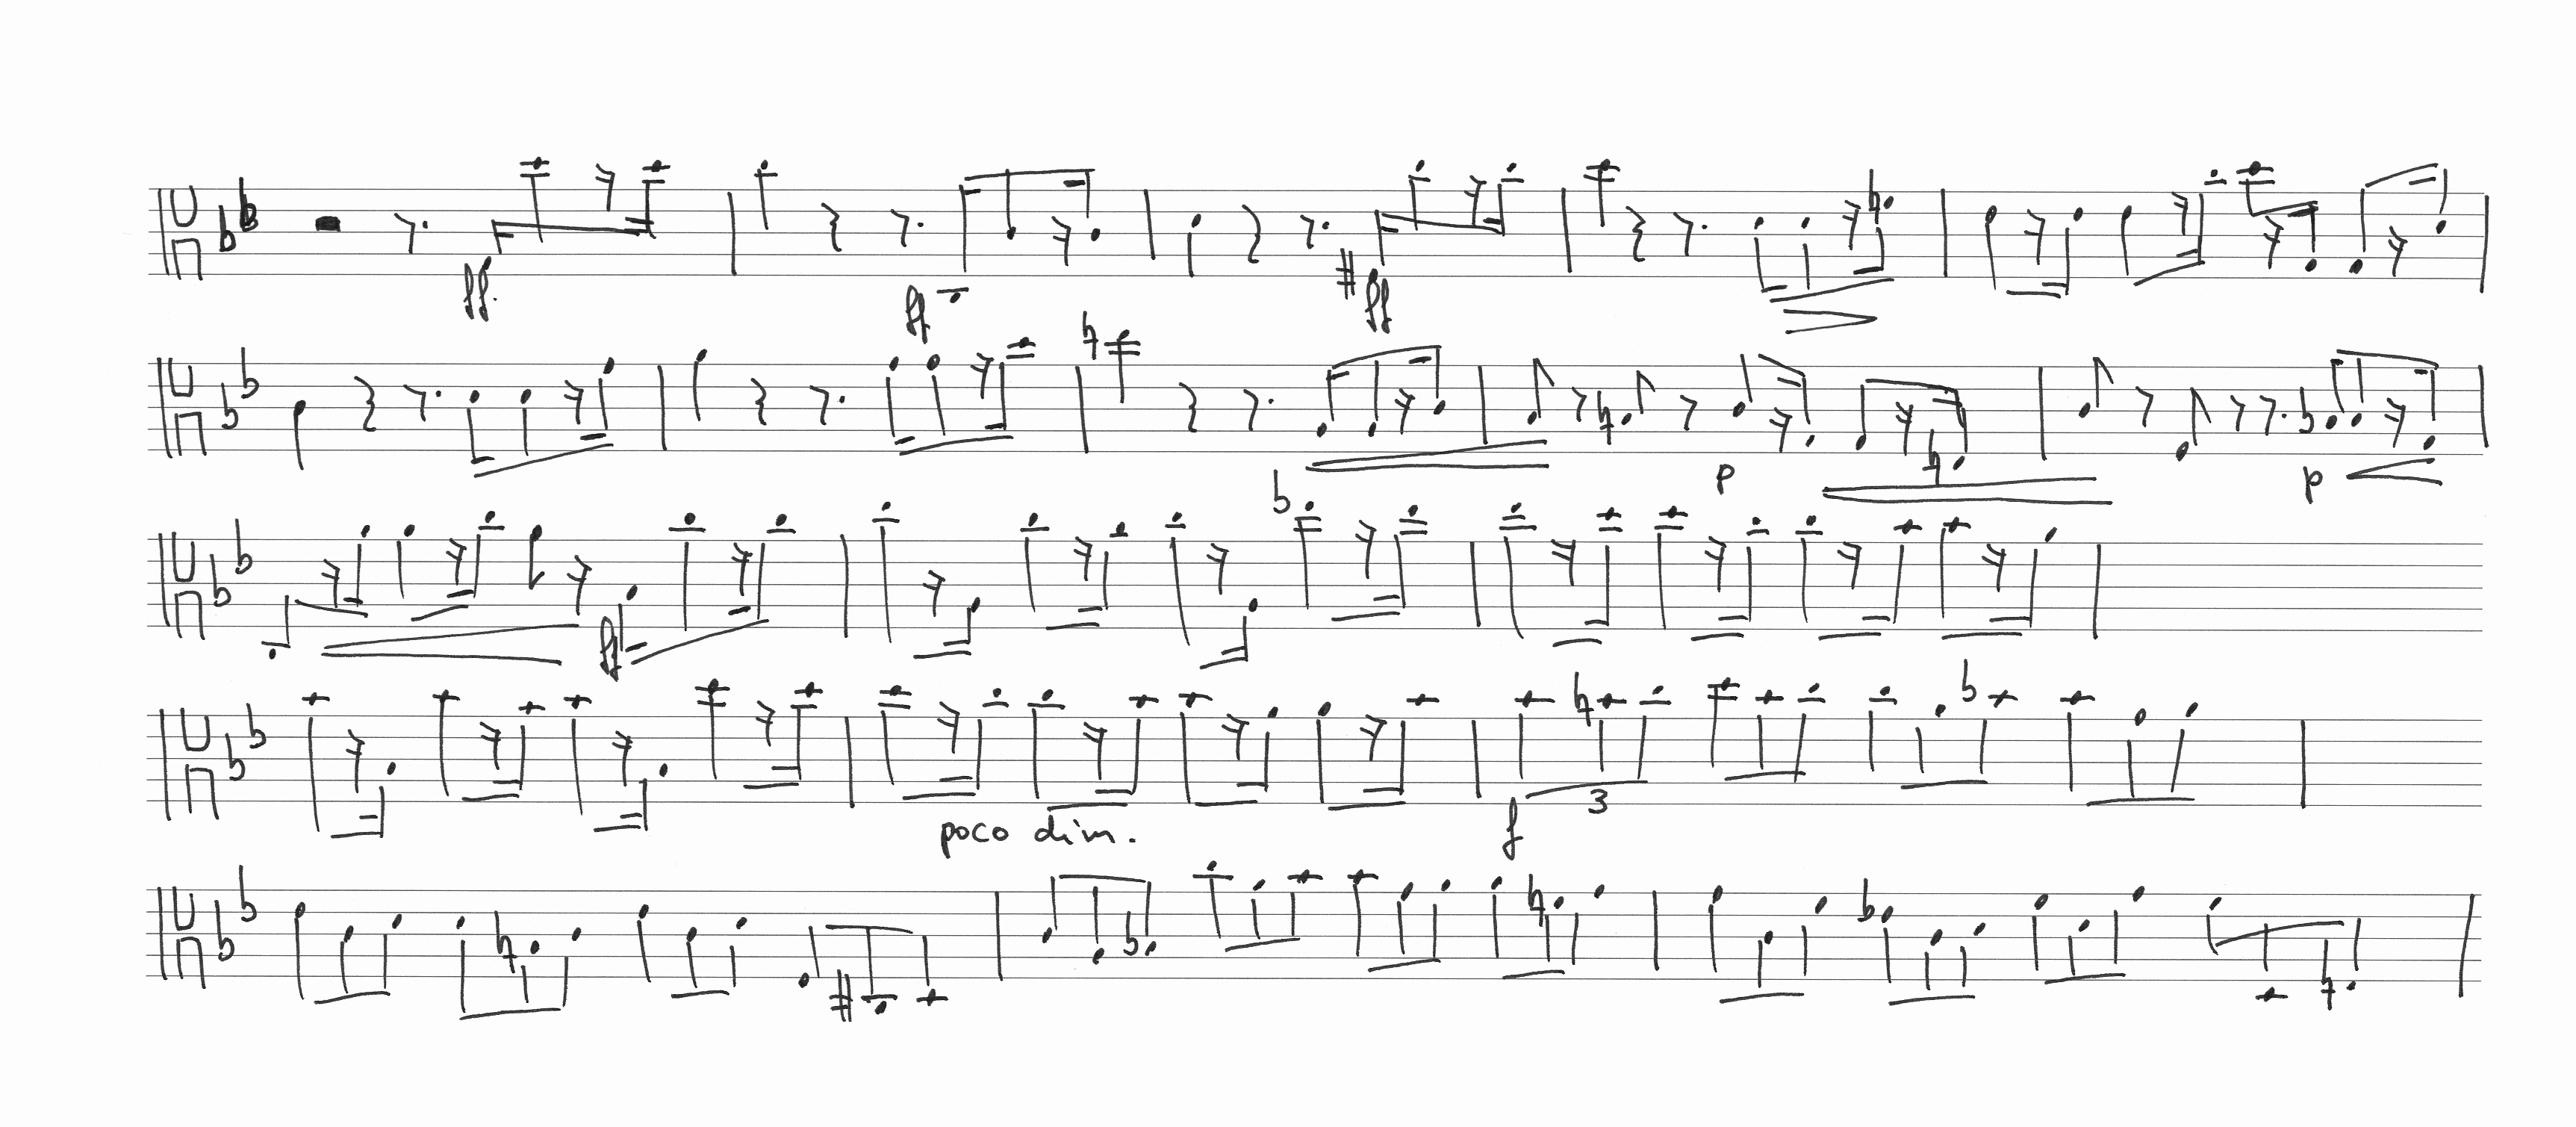 ff. ff ff
p p
ff
poco dim. f 3